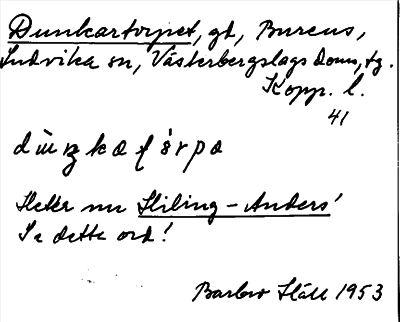 Dunkartorpet, gd, Burens,
Ludvika sn, Västerbergslags Doms, tg.
Kopp. l.
41
Heter nu Stiling-Anders'
Se detta ord!
Barbro Häll 1953